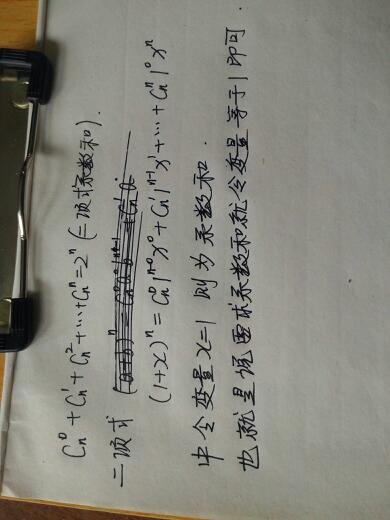 Cn⁰+Cn¹+Cn²+…+Cnⁿ=2ⁿ (二项式系数和).
二项式
(1+x)ⁿ=Cn⁰1ⁿ⁻⁰x⁰+Cn¹1ⁿ⁻¹x¹+…+Cnⁿ1⁰xⁿ
中令变量x=1 则为系数和.
也就是说要求系数和就令变量等于1即可.